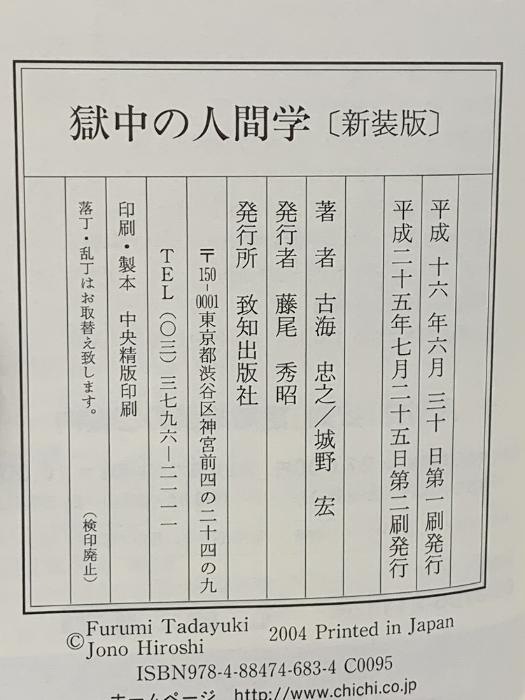 獄中の人間学〔新装版〕
平成 十六 年六月 三十 日第一刷発行
平成二十五年七月二十五日第二刷発行
著 者 古海 忠之／城野 宏
発行者 藤尾 秀昭
発行所 致知出版社
〒150-0001 東京都渋谷区神宮前四の二十四の九
TEL（〇三）三七九六―二一一一
印刷・製本 中央精版印刷
落丁・乱丁はお取替え致します。 （検印廃止）
©Furumi Tadayuki
Jono Hiroshi 2004 Printed in Japan
ISBN978-4-88474-683-4 C0095
ホームページ http://www.chichi.co.jp